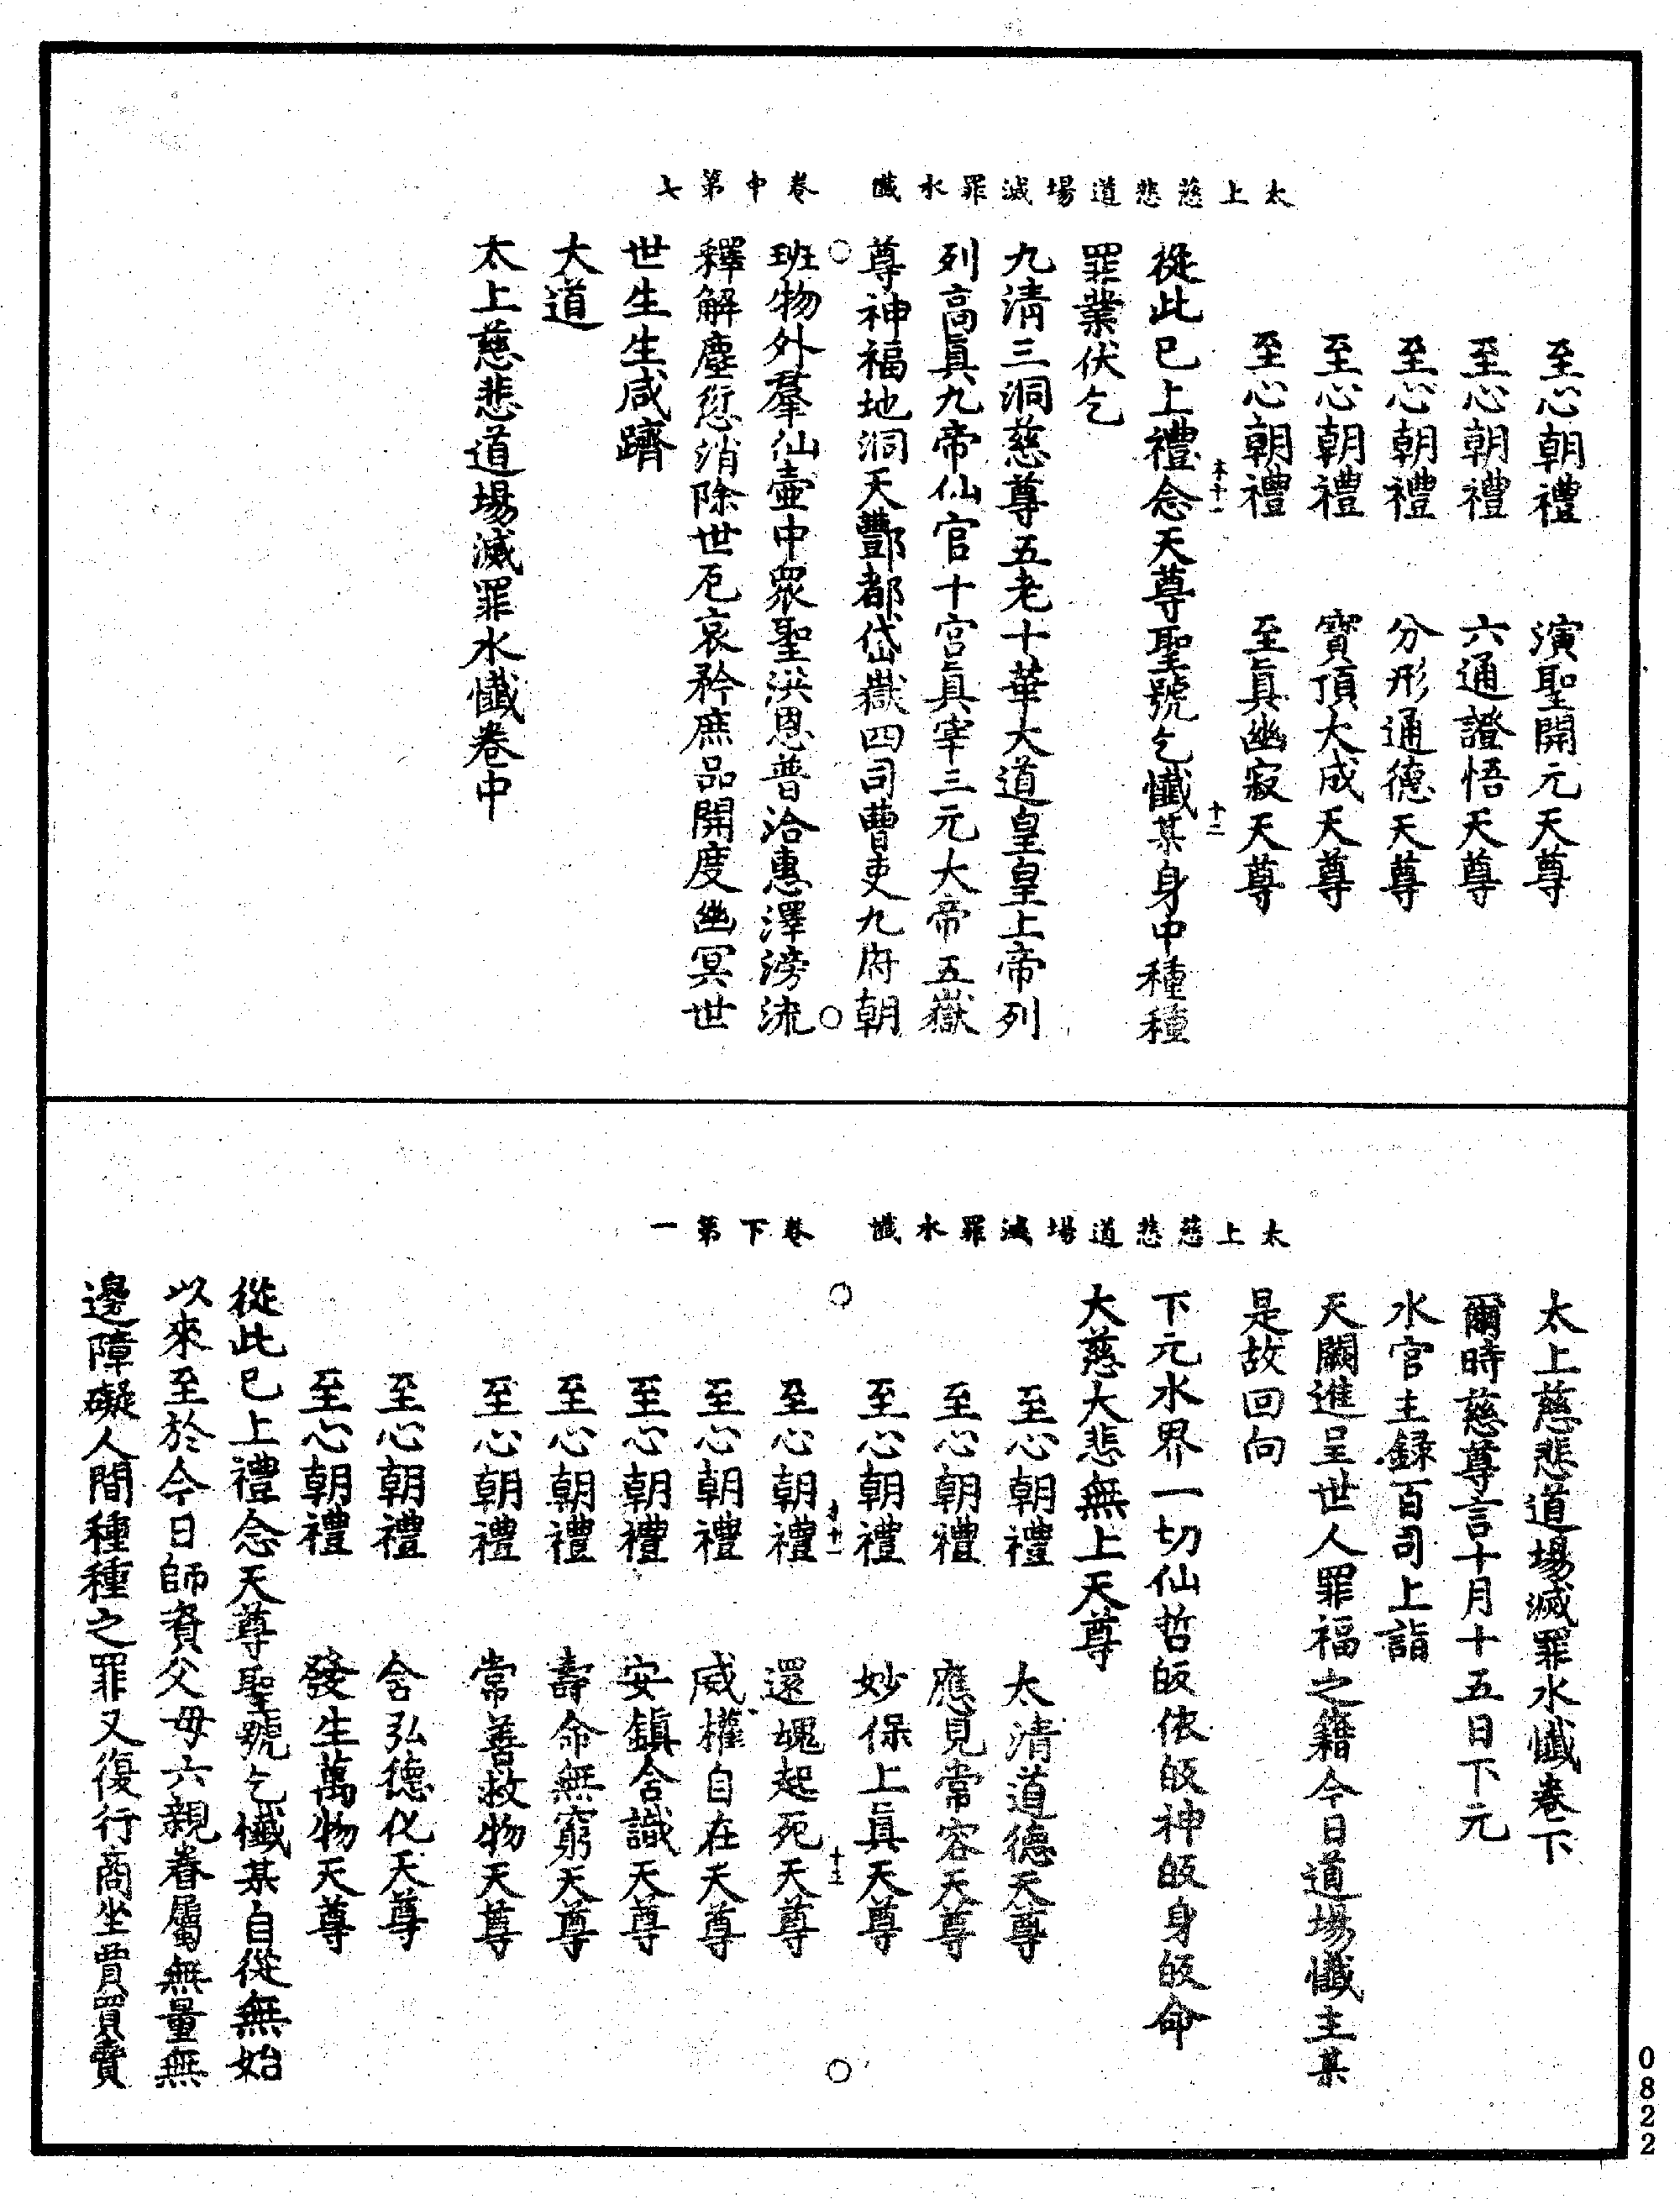 太上慈悲道場滅罪水懺　卷中第七
至心朝禮　演聖開元天尊
至心朝禮　六通證悟天尊
至心朝禮　分形通德天尊
至心朝禮　寶頂大成天尊
至心朝禮　至眞幽寂天尊
本十一　十二
從此已上禮念天尊聖號乞懺某身中種種
罪業伏乞
九清三洞慈尊五老十華大道皇皇上帝列
列高眞九帝仙官十宮眞宰三元大帝五嶽
尊神福地洞天酆都岱嶽四司曹吏九府朝
班物外羣仙壺中眾聖洪恩普洽惠澤滂流
釋解塵愆消除世厄哀矜庶品開度幽冥世
世生生咸躋
大道
太上慈悲道場滅罪水懺卷中
太上慈悲道場滅罪水懺　卷下第一
太上慈悲道場滅罪水懺卷下
爾時慈尊言十月十五日下元
水官主錄百司上詣
天闕進呈世人罪福之籍今日道場懺主某
是故回向
下元水界一切仙哲皈依皈神皈身皈命
大慈大悲無上天尊
至心朝禮　太清道德天尊
至心朝禮　應見常容天尊
至心朝禮　妙保上眞天尊
本十一　十三
至心朝禮　還魂起死天尊
至心朝禮　威權自在天尊
至心朝禮　安鎭含識天尊
至心朝禮　壽命無窮天尊
至心朝禮　常善救物天尊
至心朝禮　含弘德化天尊
至心朝禮　發生萬物天尊
從此已上禮念天尊聖號乞懺某自從無始
以來至於今日師資父母六親眷屬無量無
邊障礙人間種種之罪又復行商坐賈買賣
0822